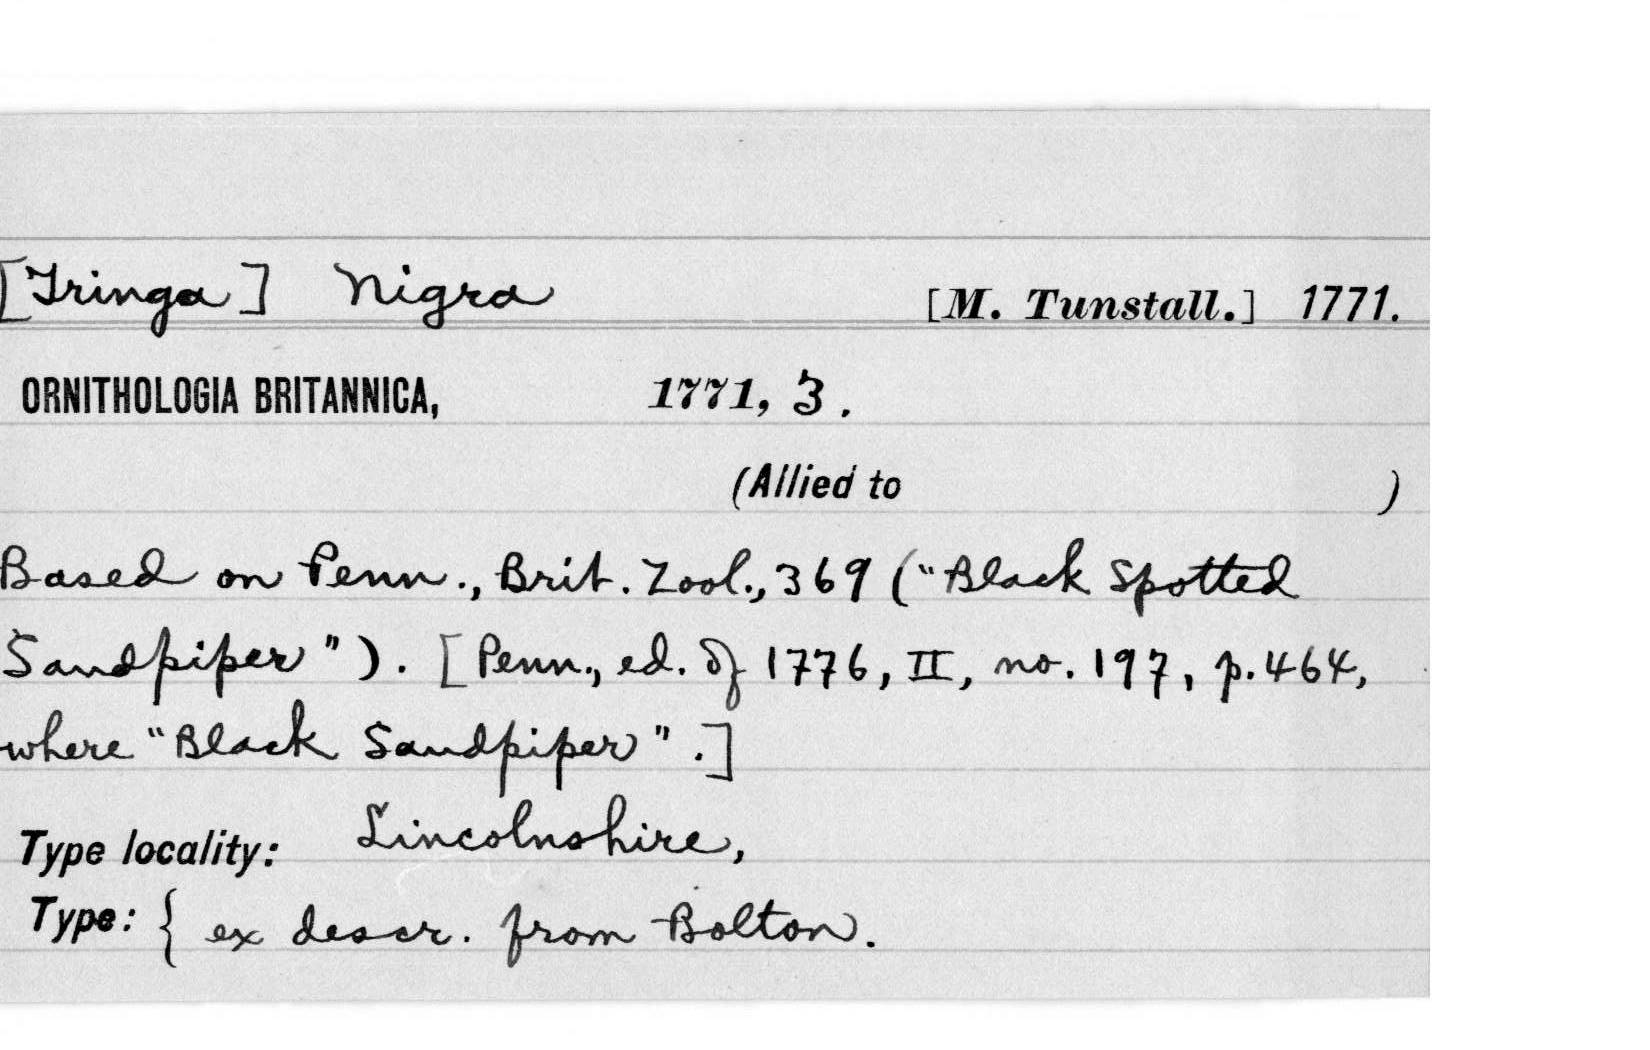 [Tringa] Nigra [M. Tunstall.] 1771.
ORNITHOLOGIA BRITANNICA, 1771, 3.
(Allied to )
Based on Penn., Brit. Zool., 369 ("Black Spotted
Sandpiper"). [Penn., ed. of 1776, II, no. 197, p. 464,
where "Black Sandpiper".]
Type locality: Lincolnshire,
Type: { ex descr. from Bolton.